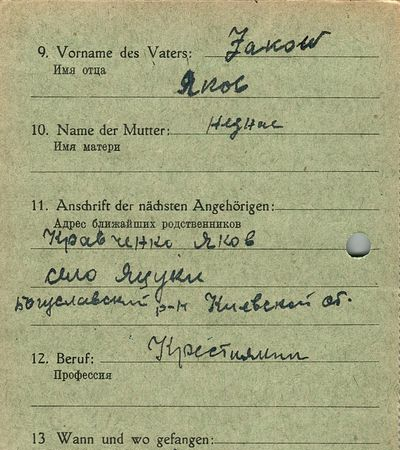 9. Vorname des Vaters: Jakow
Имя отца
Яков
10. Name der Mutter:
Имя матери
11. Anschrift der nächsten Angehörigen:
Адрес ближайших родственников
Кравченко Яков
село Яцуки
Богуславский р-н Киевской об.
12. Beruf: Крестиянин
Профессия
13 Wann und wo gefangen: